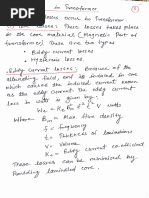 in Transformer
losses occur in Transformer ①
losses: These losses takes place
in the core material (Magnetic Part of
transformer) these are two types
• Eddy current losses
• Hysteresis losses.
• Eddy current losses: Because of the
alternating field, emf be induced in core
which caused the induced current known
as the eddy current. The eddy current
loss is given by
f² t² V watts
Where
Bm = Max. flux density
f = frequency
t = Thickness of laminations
V = Volume
Ke = Eddy current coefficient
These losses can be minimized by
laminated core.